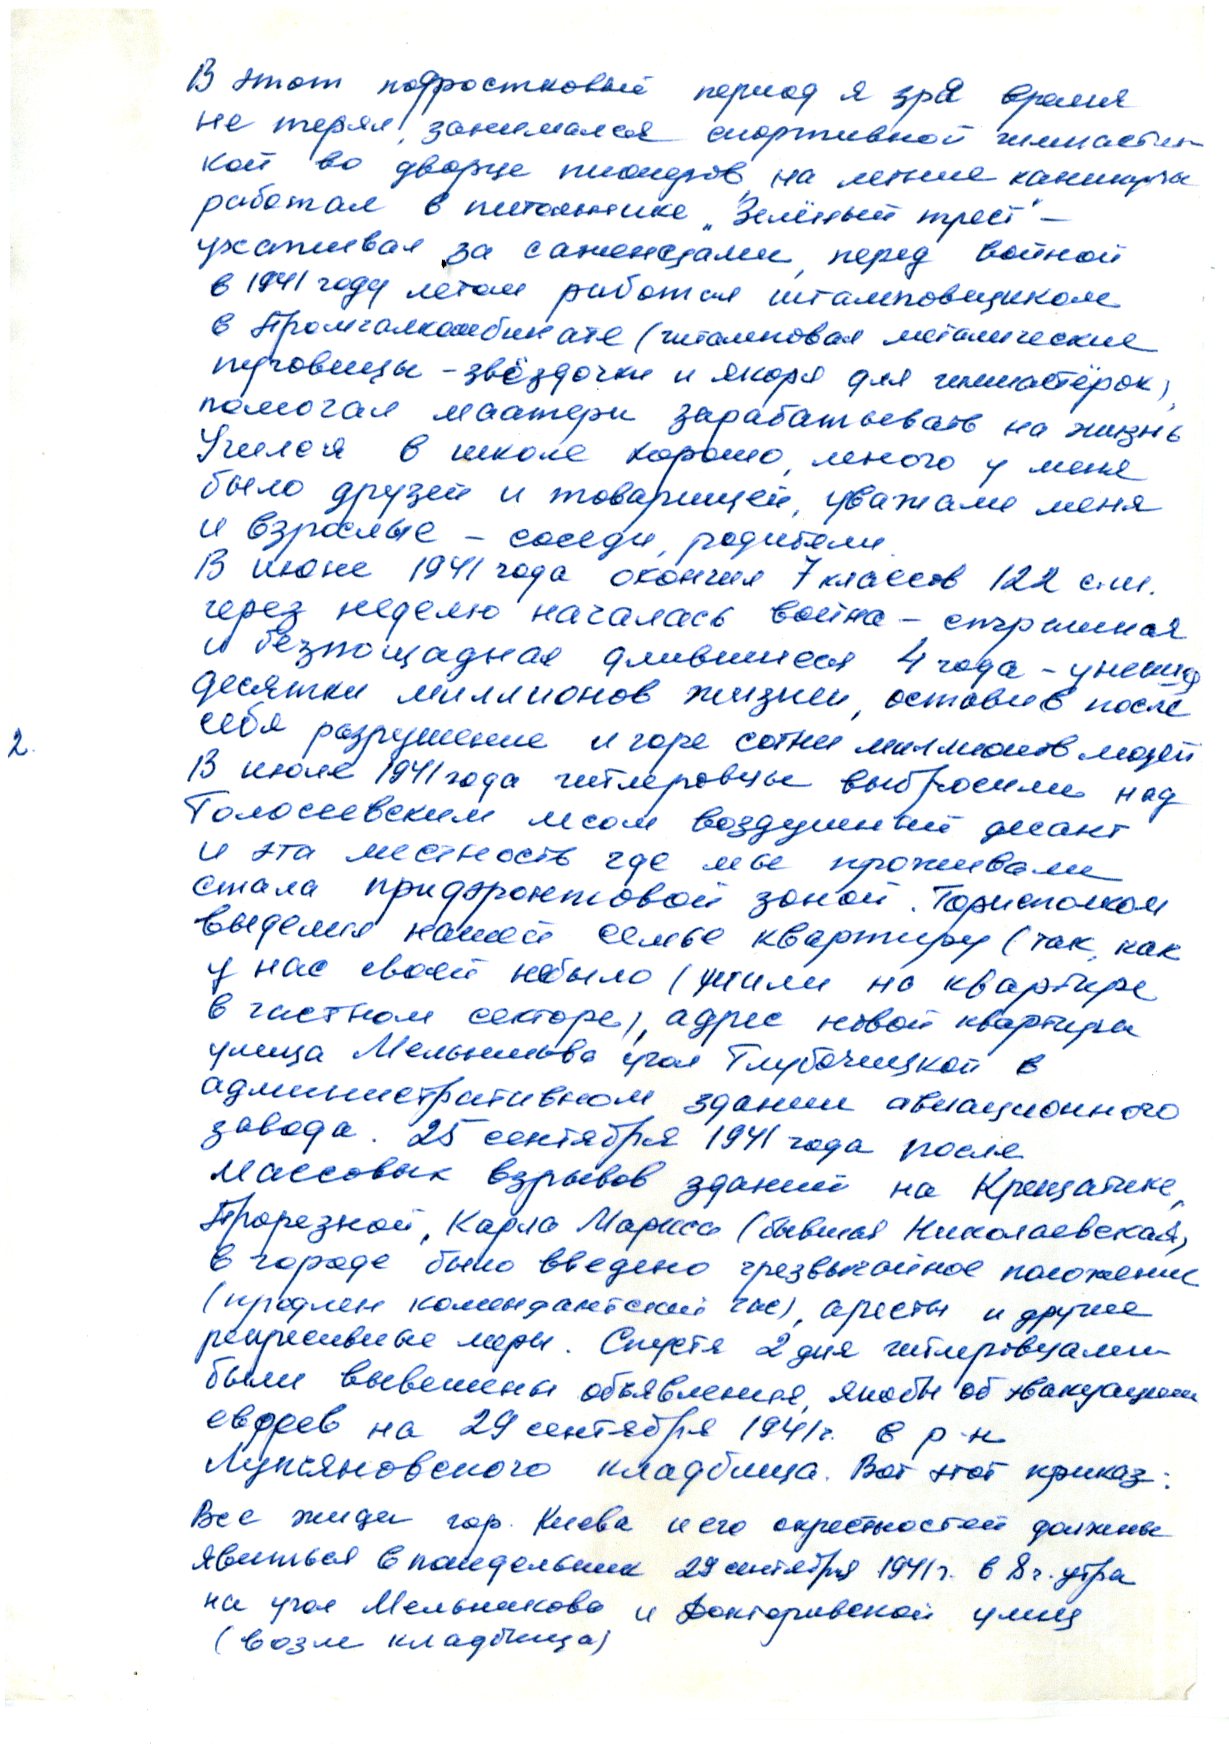 В этот подростковый период я зря время
не терял, занимался спортивной гимнасти-
кой во дворце пионеров, на летние каникулы
работал в питомнике "Зелёный трест" –
ухаживал за саженцами, перед войной
в 1941 году летом работал штамповщиком
в Промгалкомбинате (штамповал металические
пуговицы – звёздочки и якоря для гимнастёрок),
помогал маатери зарабатывать на жизнь
Учился в школе хорошо, много у меня
было друзей и товарищей, уважали меня
и взрослые – соседи, родители.
В июне 1941 года окончил 7 классов 122 с.ш.
через неделю началась война – страшная
и безпощадная длившиеся 4 года – унесшая
десятки миллионов жизней, оставив после
себя разрушение и горе сотни миллионов людей
2.
В июле 1941 года гитлеровцы выбросили над
Голосеевским лесом воздушный десант
и эта местность где мы проживали
стала прифронтовой зоной. Горисполком
выделил нашей семье квартиру (так, как
у нас своей небыло (жили на квартире
в частном секторе), адрес новой квартиры
улица Мельникова угол Глубочицкой в
административном здании авиационного
завода. 25 сентября 1941 года после
массовых взрывов зданий на Крещатике,
Прорезной, Карла Маркса (бывшая Николаевская,
в городе было введено чрезвычайное положение
(продлен комендантский час), аресты и другие
репресивные меры. Спустя 2 дня гитлеровцами
были вывешены объявления, якобы об эвакуации
евреев на 29 сентября 1941 г. в р-н
Лукьяновского кладбища. Вот этот приказ:
Все жиды гор. Киева и его окрестностей должны
явиться в понедельник 29 сентября 1941 г. в 8 ч. утра
на угол Мельникова и Докторивской улиц
(возле кладбища)